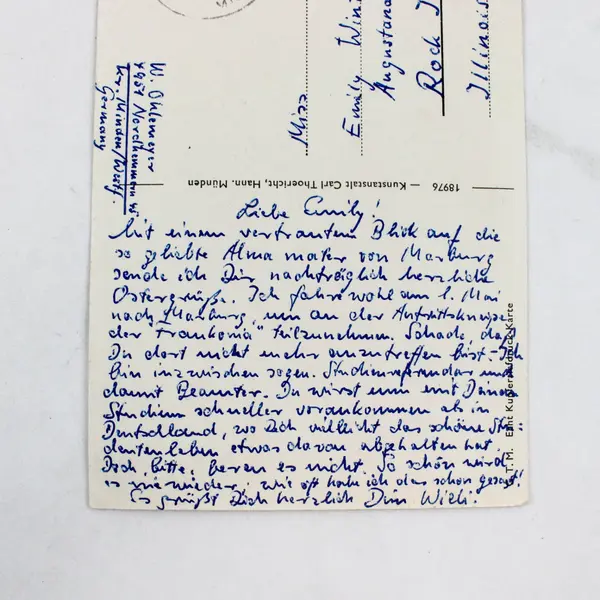 Liebe Emily!
Mit einem vertrauten Blick auf die
so geliebte Alma mater von Marburg
sende ich Dir nachträglich herzliche
Ostergrüße. Ich fahre wohl am 1. Mai
nach Marburg, um an der Antrittskneipe
der "Frankonia" teilzunehmen. Schade, daß
Du dort nicht mehr anzutreffen bist - Ich
bin inzwischen sogen. Studienreferendar und
damit Beamter. Du wirst nun mit Deinem
Studium schneller vorankommen als in
Deutschland, wo Dich vielleicht das schöne Stu-
dentenleben etwas davon abgehalten hat.
Doch, bitte, bereu es nicht. "So schön wird
es nie wieder", wie oft habe ich das schon gesagt!
Es grüßt Dich herzlich Dein Willi.
18976 — Kunstanstalt Carl Thoericht, Hann. Münden
T. M. Echt Kupfertiefdruck-Karte
W. Ohlemeyer
Nordhemmern
Kr. Minden/Westf.
Germany
Miss
Emily
Augustana
Rock I
Illinois